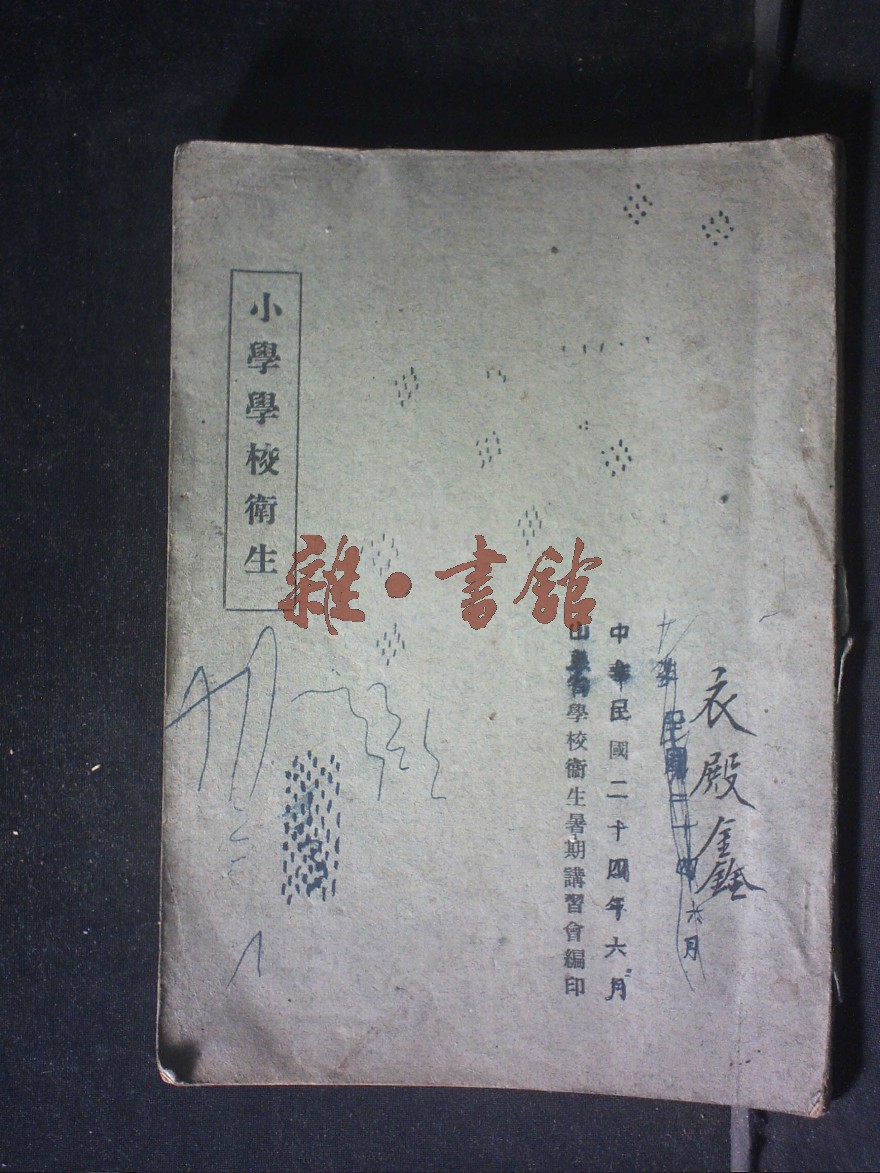 衣殿鑫
民國二十四 六月
中華民國二十四年六月
山東省學校衞生暑期講習會編印
小學學校衞生
雜•書館